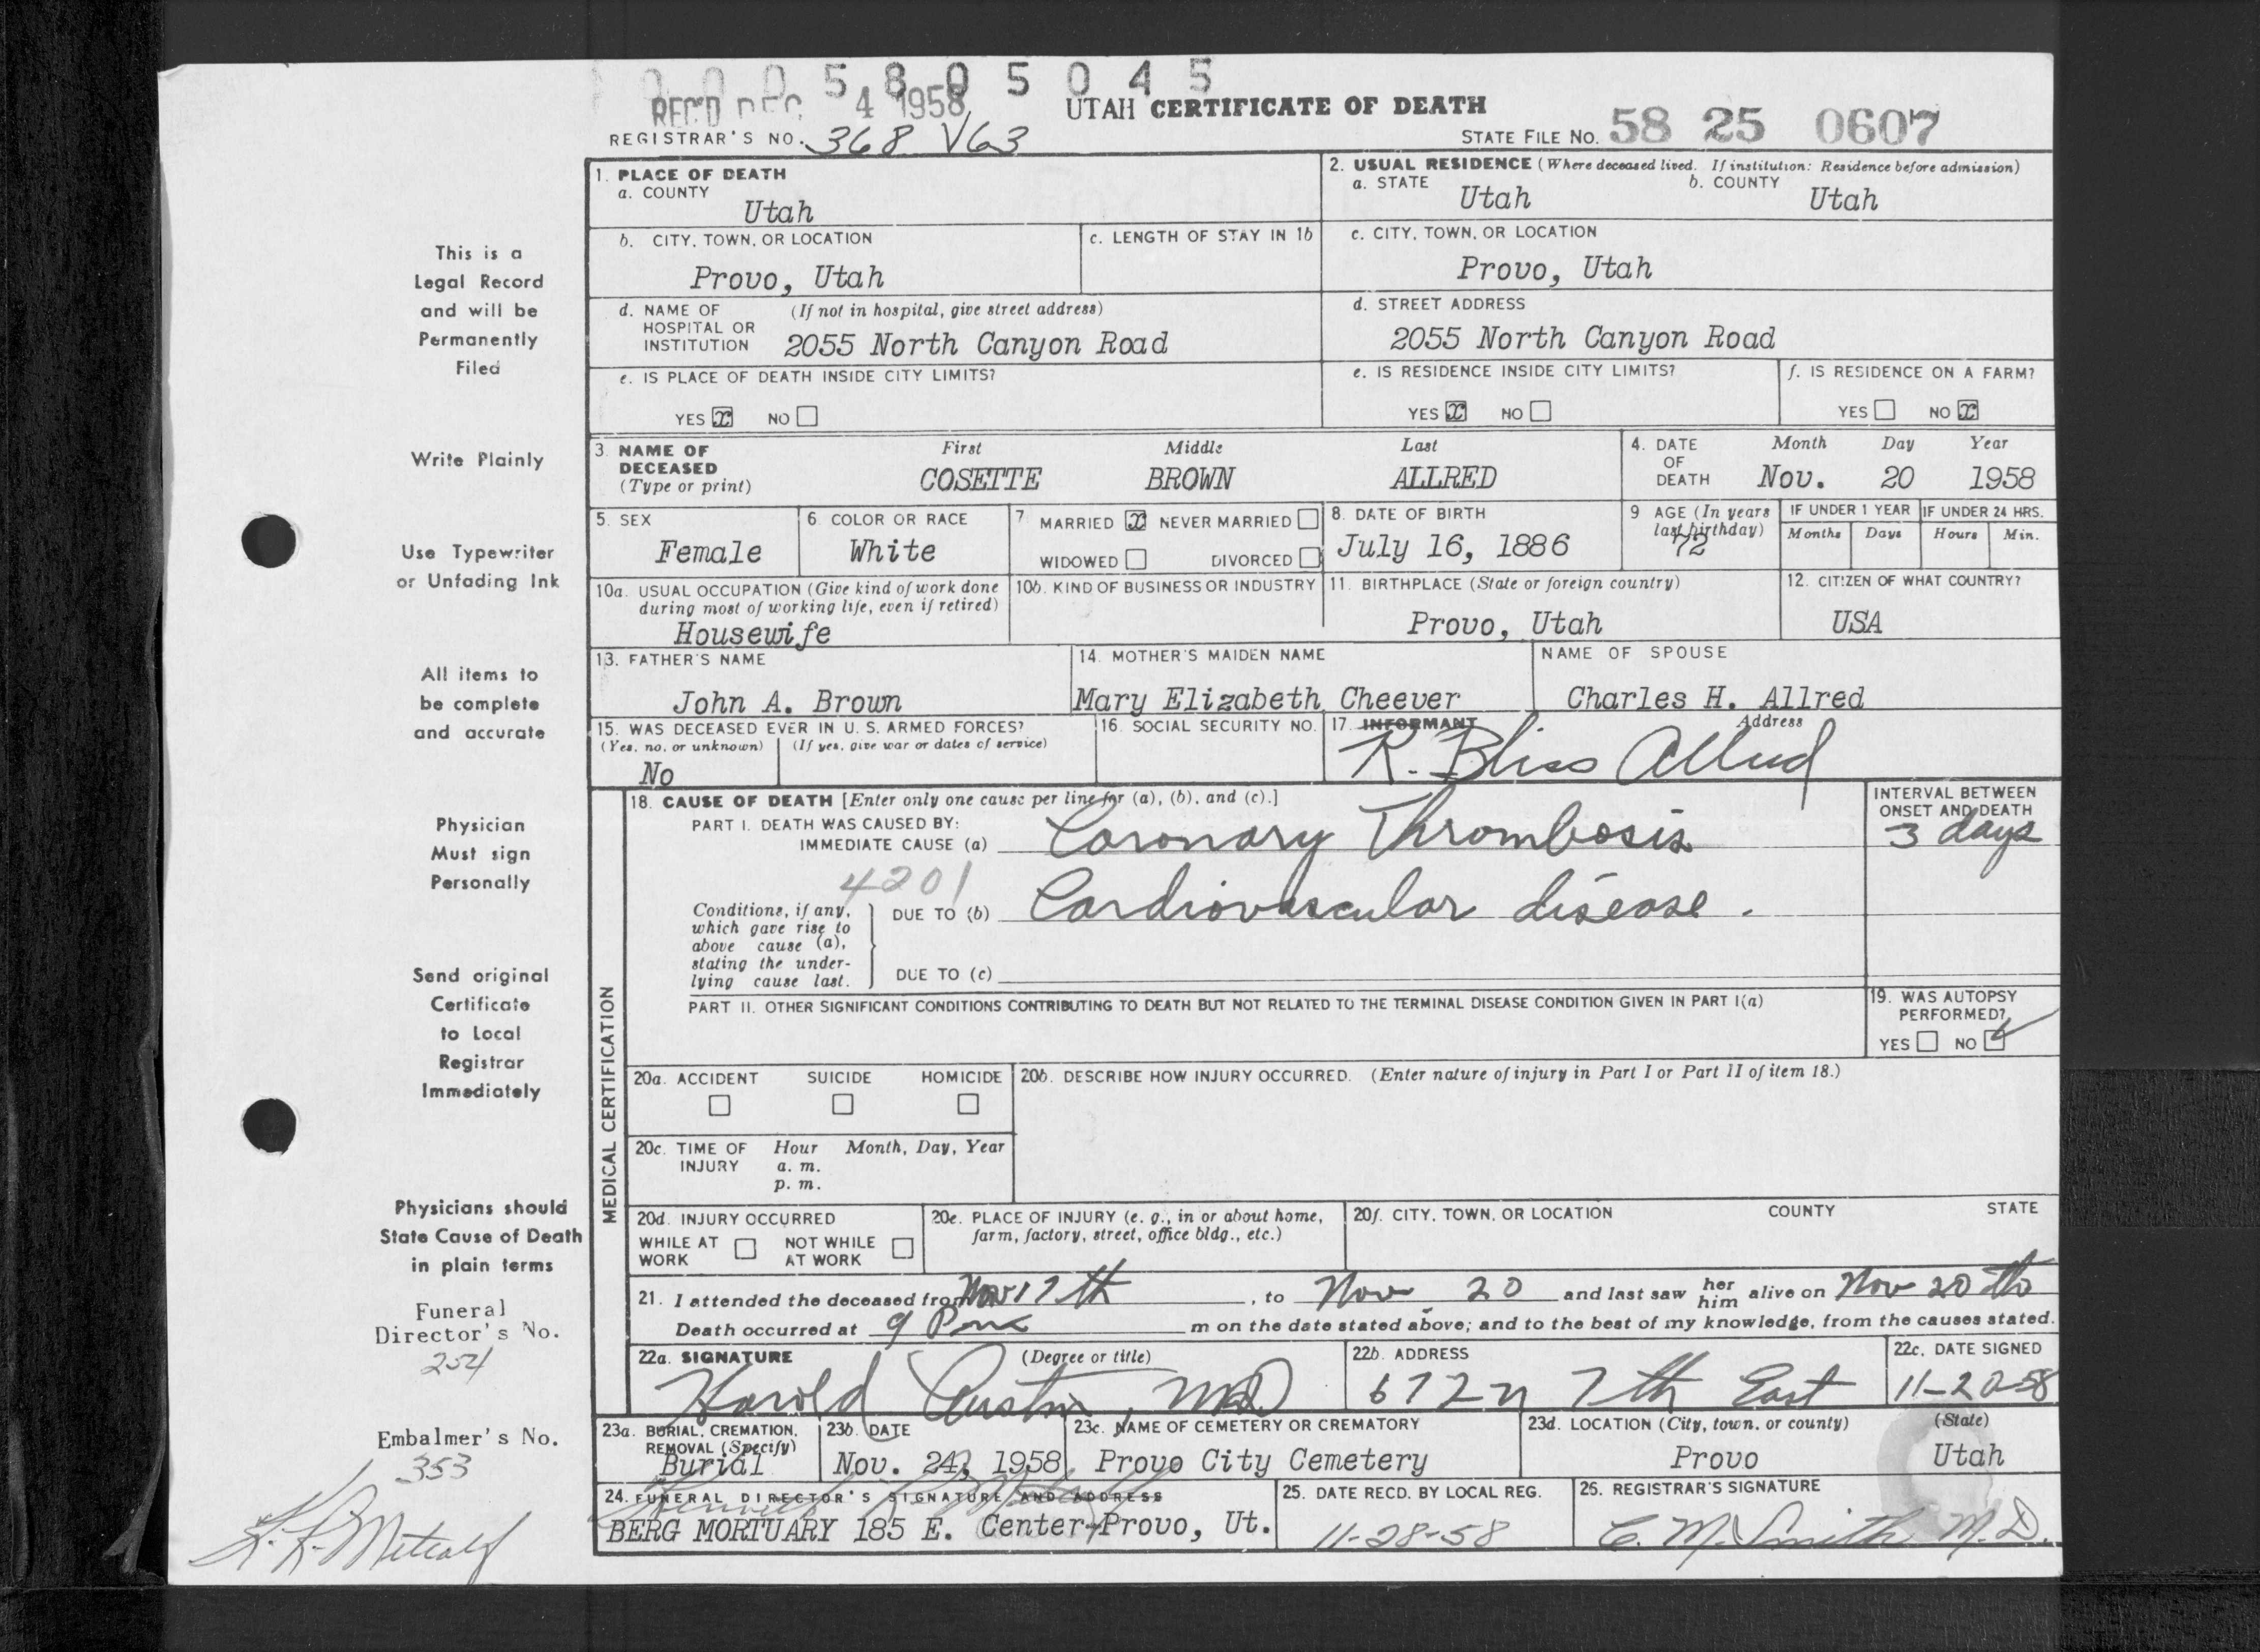 0 0 0 5 8 0 5 0 4 5
REC'D DEC 4 1958
UTAH CERTIFICATE OF DEATH
REGISTRAR'S NO. 368 V63
STATE FILE NO. 58 25 0607
1. PLACE OF DEATH
a. COUNTY
Utah
2. USUAL RESIDENCE (Where deceased lived. If institution: Residence before admission)
a. STATE Utah b. COUNTY Utah
b. CITY, TOWN, OR LOCATION
Provo, Utah
c. LENGTH OF STAY IN 1b
c. CITY, TOWN, OR LOCATION
Provo, Utah
d. NAME OF (If not in hospital, give street address)
HOSPITAL OR
INSTITUTION 2055 North Canyon Road
d. STREET ADDRESS
2055 North Canyon Road
e. IS PLACE OF DEATH INSIDE CITY LIMITS?
YES x NO
e. IS RESIDENCE INSIDE CITY LIMITS?
YES x NO
f. IS RESIDENCE ON A FARM?
YES NO x
3. NAME OF DECEASED (Type or print)
First Middle Last
COSETTE BROWN ALLRED
4. DATE OF DEATH
Month Day Year
Nov. 20 1958
5. SEX
Female
6. COLOR OR RACE
White
7. MARRIED x NEVER MARRIED
WIDOWED DIVORCED
8. DATE OF BIRTH
July 16, 1886
9 AGE (In years
last birthday)
72
IF UNDER 1 YEAR
Months Days
IF UNDER 24 HRS.
Hours Min.
10a. USUAL OCCUPATION (Give kind of work done
during most of working life, even if retired)
Housewife
10b. KIND OF BUSINESS OR INDUSTRY
11. BIRTHPLACE (State or foreign country)
Provo, Utah
12. CITIZEN OF WHAT COUNTRY?
USA
13. FATHER'S NAME
John A. Brown
14. MOTHER'S MAIDEN NAME
Mary Elizabeth Cheever
NAME OF SPOUSE
Charles H. Allred
15. WAS DECEASED EVER IN U. S. ARMED FORCES?
(Yes, no, or unknown) (If yes, give war or dates of service)
No
16. SOCIAL SECURITY NO.
17. INFORMANT Address
R. Bliss Allred
MEDICAL CERTIFICATION
18. CAUSE OF DEATH [Enter only one cause per line for (a), (b), and (c).]
PART I. DEATH WAS CAUSED BY:
IMMEDIATE CAUSE (a) Coronary Thrombosis
INTERVAL BETWEEN
ONSET AND DEATH
3 days
4201
Conditions, if any,
which gave rise to
above cause (a),
stating the under-
lying cause last.
DUE TO (b) Cardiovascular disease.
DUE TO (c)
PART II. OTHER SIGNIFICANT CONDITIONS CONTRIBUTING TO DEATH BUT NOT RELATED TO THE TERMINAL DISEASE CONDITION GIVEN IN PART I(a)
19. WAS AUTOPSY
PERFORMED?
YES NO ✓
20a. ACCIDENT SUICIDE HOMICIDE
20b. DESCRIBE HOW INJURY OCCURRED. (Enter nature of injury in Part I or Part II of item 18.)
20c. TIME OF INJURY
Hour Month, Day, Year
a. m.
p. m.
20d. INJURY OCCURRED
WHILE AT WORK
NOT WHILE AT WORK
20e. PLACE OF INJURY (e. g., in or about home,
farm, factory, street, office bldg., etc.)
20f. CITY, TOWN, OR LOCATION COUNTY STATE
21. I attended the deceased from Nov 17th, to Nov. 20 and last saw her him alive on Nov 20th
Death occurred at 9 Pm m on the date stated above; and to the best of my knowledge, from the causes stated.
22a. SIGNATURE (Degree or title)
Harold Austin, MD
22b. ADDRESS
672 N 7th East
22c. DATE SIGNED
11-20-58
23a. BURIAL, CREMATION,
REMOVAL (Specify)
Burial
23b. DATE
Nov. 24, 1958
23c. NAME OF CEMETERY OR CREMATORY
Provo City Cemetery
23d. LOCATION (City, town, or county) (State)
Provo Utah
24. FUNERAL DIRECTOR'S SIGNATURE AND ADDRESS
BERG MORTUARY 185 E. Center-Provo, Ut.
25. DATE RECD. BY LOCAL REG.
11-28-58
26. REGISTRAR'S SIGNATURE
C. M. Smith M.D.
This is a
Legal Record
and will be
Permanently
Filed
Write Plainly
Use Typewriter
or Unfading Ink
All items to
be complete
and accurate
Physician
Must sign
Personally
Send original
Certificate
to Local
Registrar
Immediately
Physicians should
State Cause of Death
in plain terms
Funeral
Director's No.
254
Embalmer's No.
353
K. R. Metcalf